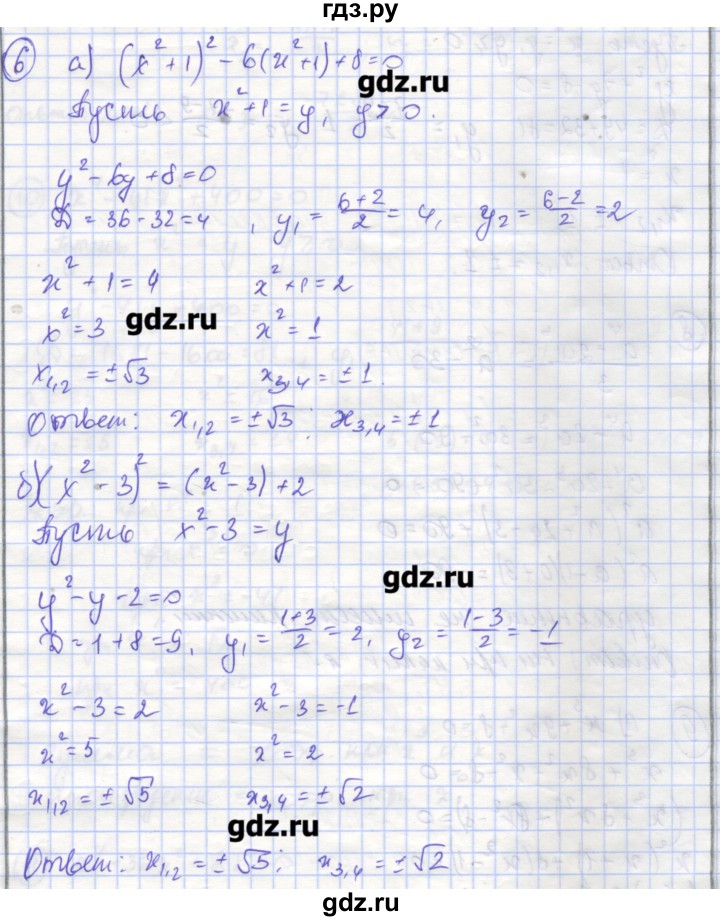 гдз.ру
6 а) (x²+1)² - 6(x²+1)+8=0
gdz.ru
Пусть x²+1=y, y>0.
y²-6y+8=0
D=36-32=4, y₁=(6+2)/2=4, y₂=(6-2)/2=2
x²+1=4 x²+1=2
x²=3 gdz.ru x²=1
x₁,₂=±√3 x₃,₄=±1.
Ответ: x₁,₂=±√3; x₃,₄=±1
б) (x²-3)²=(x²-3)+2
Пусть x²-3=y
gdz.ru
y²-y-2=0
D=1+8=9, y₁=(1+3)/2=2, y₂=(1-3)/2=-1
x²-3=2 x²-3=-1
x²=5 x²=2
x₁,₂=±√5 x₃,₄=±√2
gdz.ru
Ответ: x₁,₂=±√5; x₃,₄=±√2
gdz.ru